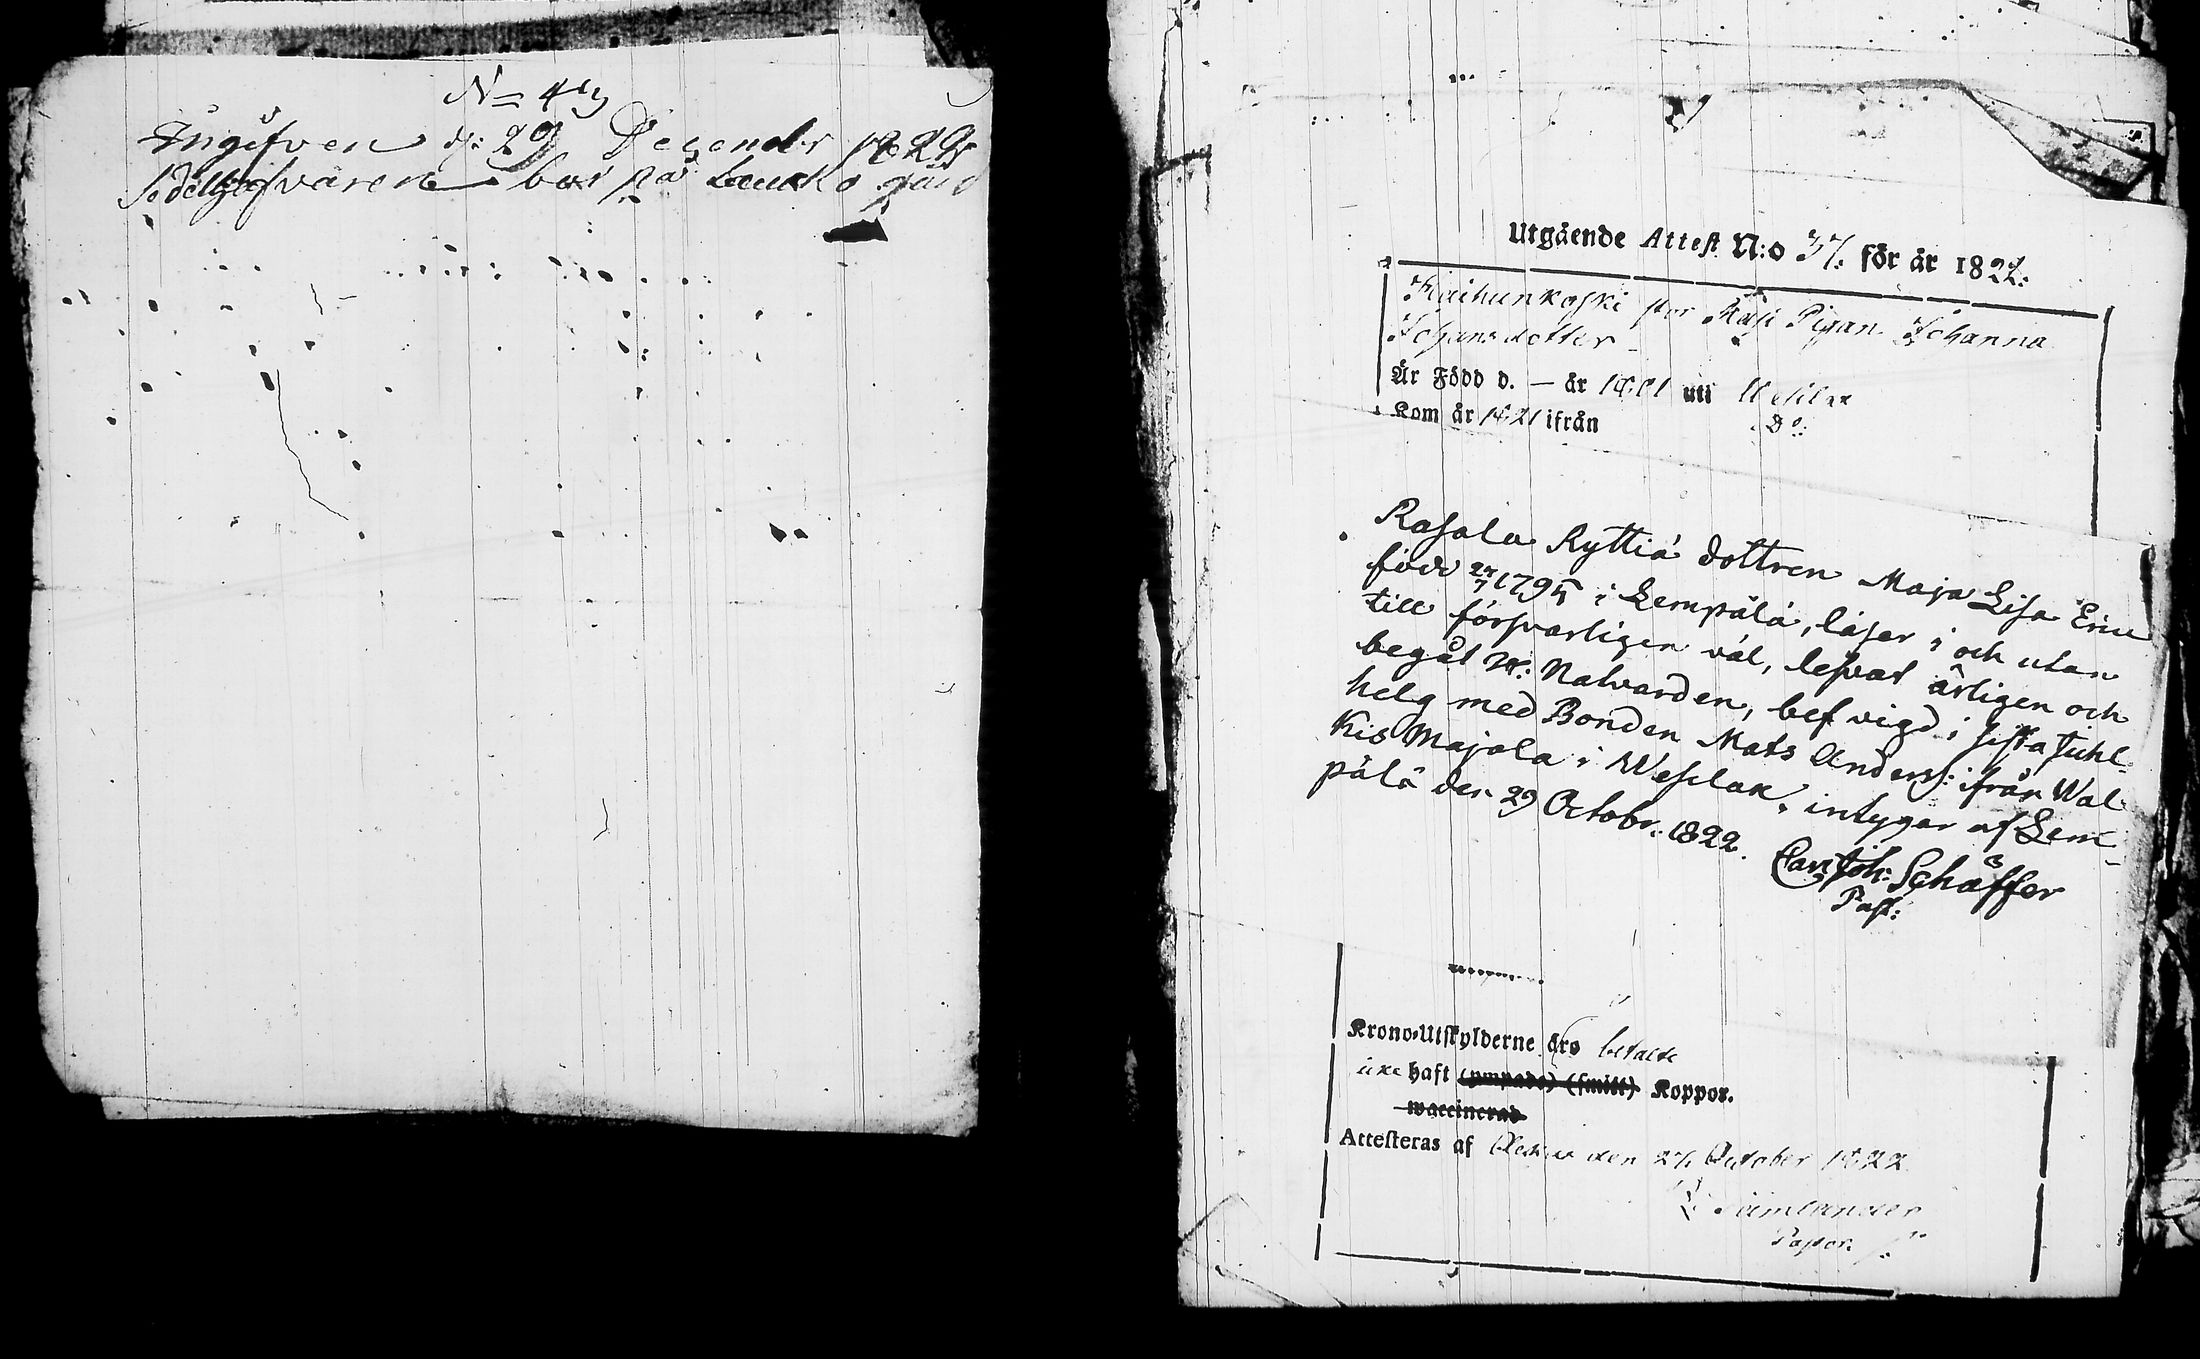 N= 49
Ingifven d: 29 Decembr 1822
Sedelhafvaren bor på Laukko gård
Utgående Attest N:o 37. för år 1822.
stor Pigan Johanna
Johansdotter
Är Född d. — år 1801 uti Vesilax
Kom år 1821 ifrån D:o
Rasala Ryttiä dottren Maja Lisa Erics
född 27/7 1795 i Lempälä, läser i och utan
till försvarligen väl, lefvat ärligen och
begåt H: Natvarden, blef vigd i sista Juhl-
helg med Bonden Mats Anders: ifrån Wal-
kis Majala i Wesilax, intygar af Lem-
pälä den 29 Octobr. 1822.
Carl Joh: Schäffer
Past:
Krono-Utskylderne äro betalte
icke haft (ympade) (smitt) Koppor.
waccinerad
Attesteras af den 27 October 1822
Pastor.